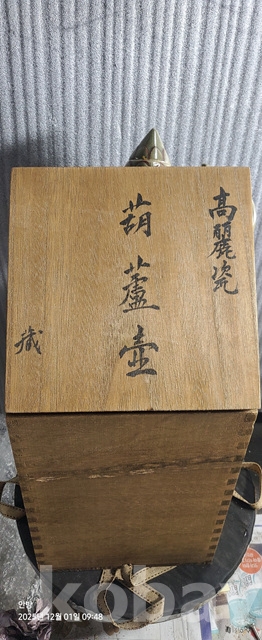 高麗瓷
葫蘆壺
藏
안방
2025년 12월 01일 09:48
kobay